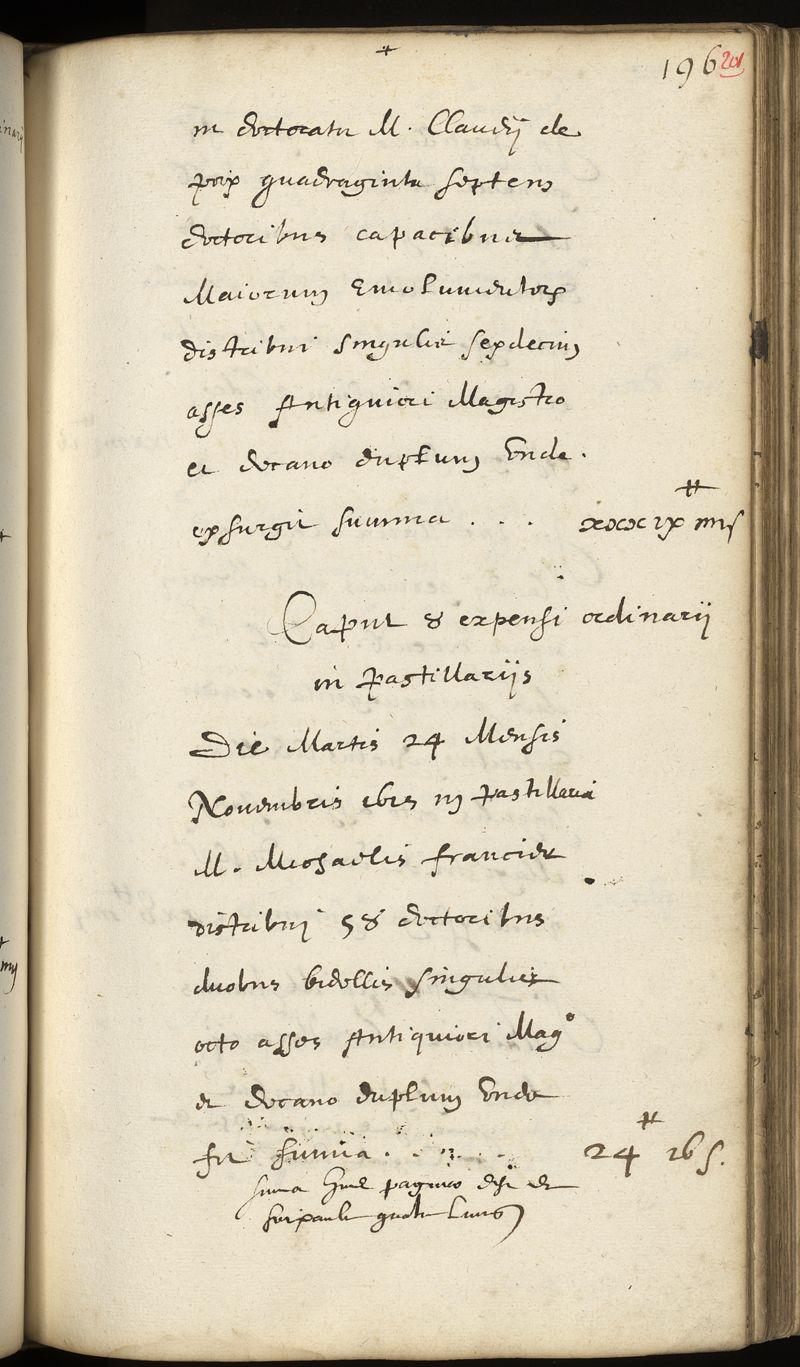 196 201
in doctoratu M. Claudij de
poix quadraginta septem
doctoribus capacibus
Maiorum Emolumentorum
distribui singulis sexdecim
asses Antiquiori Magistro
et decano duplum Unde
exsurgit summa . . . xxxix ₶ iiij s
Caput 8 expensi ordinarij
in pastillarijs
Die Martis 24 Mensis
Novembris 1615 in pastillaria
M. Michaelis
distribuj 58 doctoribus
duobus bidellis singulis
octo asses Antiquiori Mag°
et decano duplum Unde
fit summa . . . . . 24 ₶ 16 s.
summa paginae